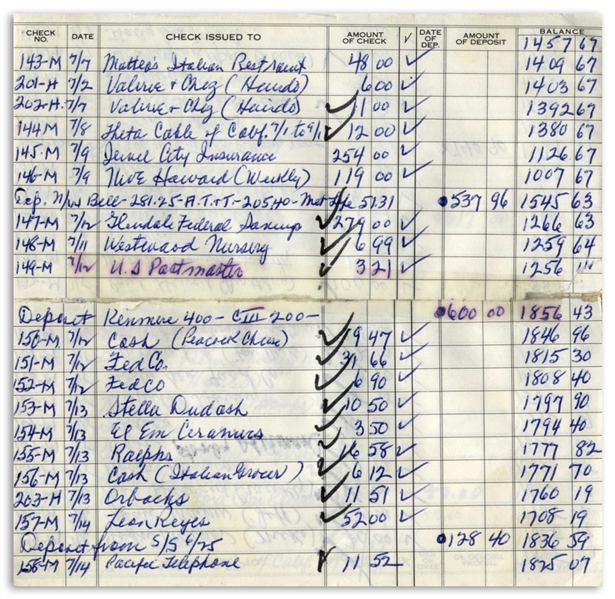 CHECK NO. DATE CHECK ISSUED TO AMOUNT OF CHECK √ DATE OF DEP. AMOUNT OF DEPOSIT BALANCE
1457 67
143-M 7/7 Matteo's Italian Restraunt 48 00 ✓ 1409 67
201-H 7/2 Valerie + Chez (Hairdo) 6 00 ✓ 1403 67
202-H 7/7 Valerie + Chez (Hairdo) 11 00 ✓ 1392 67
144M 7/8 Theta Cable of Calif. 7/1 to 9/1 12 00 ✓ 1380 67
145-M 7/9 City Insurance 254 00 ✓ 1126 67
146-M 7/9 Howard (Weekly) 119 00 ✓ 1007 67
Dep. Bell-281.25-A.T.+T-205.40- 51.31 537 96 1545 63
147-M 7/12 Glendale Federal Savings 279 00 ✓ 1266 63
148-M 7/11 Westwood Nursery 6 99 ✓ 1259 64
149-M 7/12 U.S Postmaster 3 21 ✓ 1256
Deposit Kenmere 400- C III 200- 600 00 1856 43
150-M 7/12 Cash (Peacock Chair) 9 47 ✓ 1846 96
151-M 7/12 FedCo. 31 66 ✓ 1815 30
152-M 7/12 Fedco 6 90 ✓ 1808 40
153-M 7/13 Stella Dudash 10 50 ✓ 1797 90
154-M 7/13 El Em Ceramics 3 50 ✓ 1794 40
155-M 7/13 Ralphs 16 58 ✓ 1777 82
156-M 7/13 Cash (Italian Grocer) 6 12 ✓ 1771 70
203-H 7/13 Orbachs 11 51 ✓ 1760 19
157-M 7/14 Leon Reyes 52 00 ✓ 1708 19
Deposit from 5/5 6/25 128 40 1836 59
158-M 7/14 Pacific Telephone 11 52 1825 07